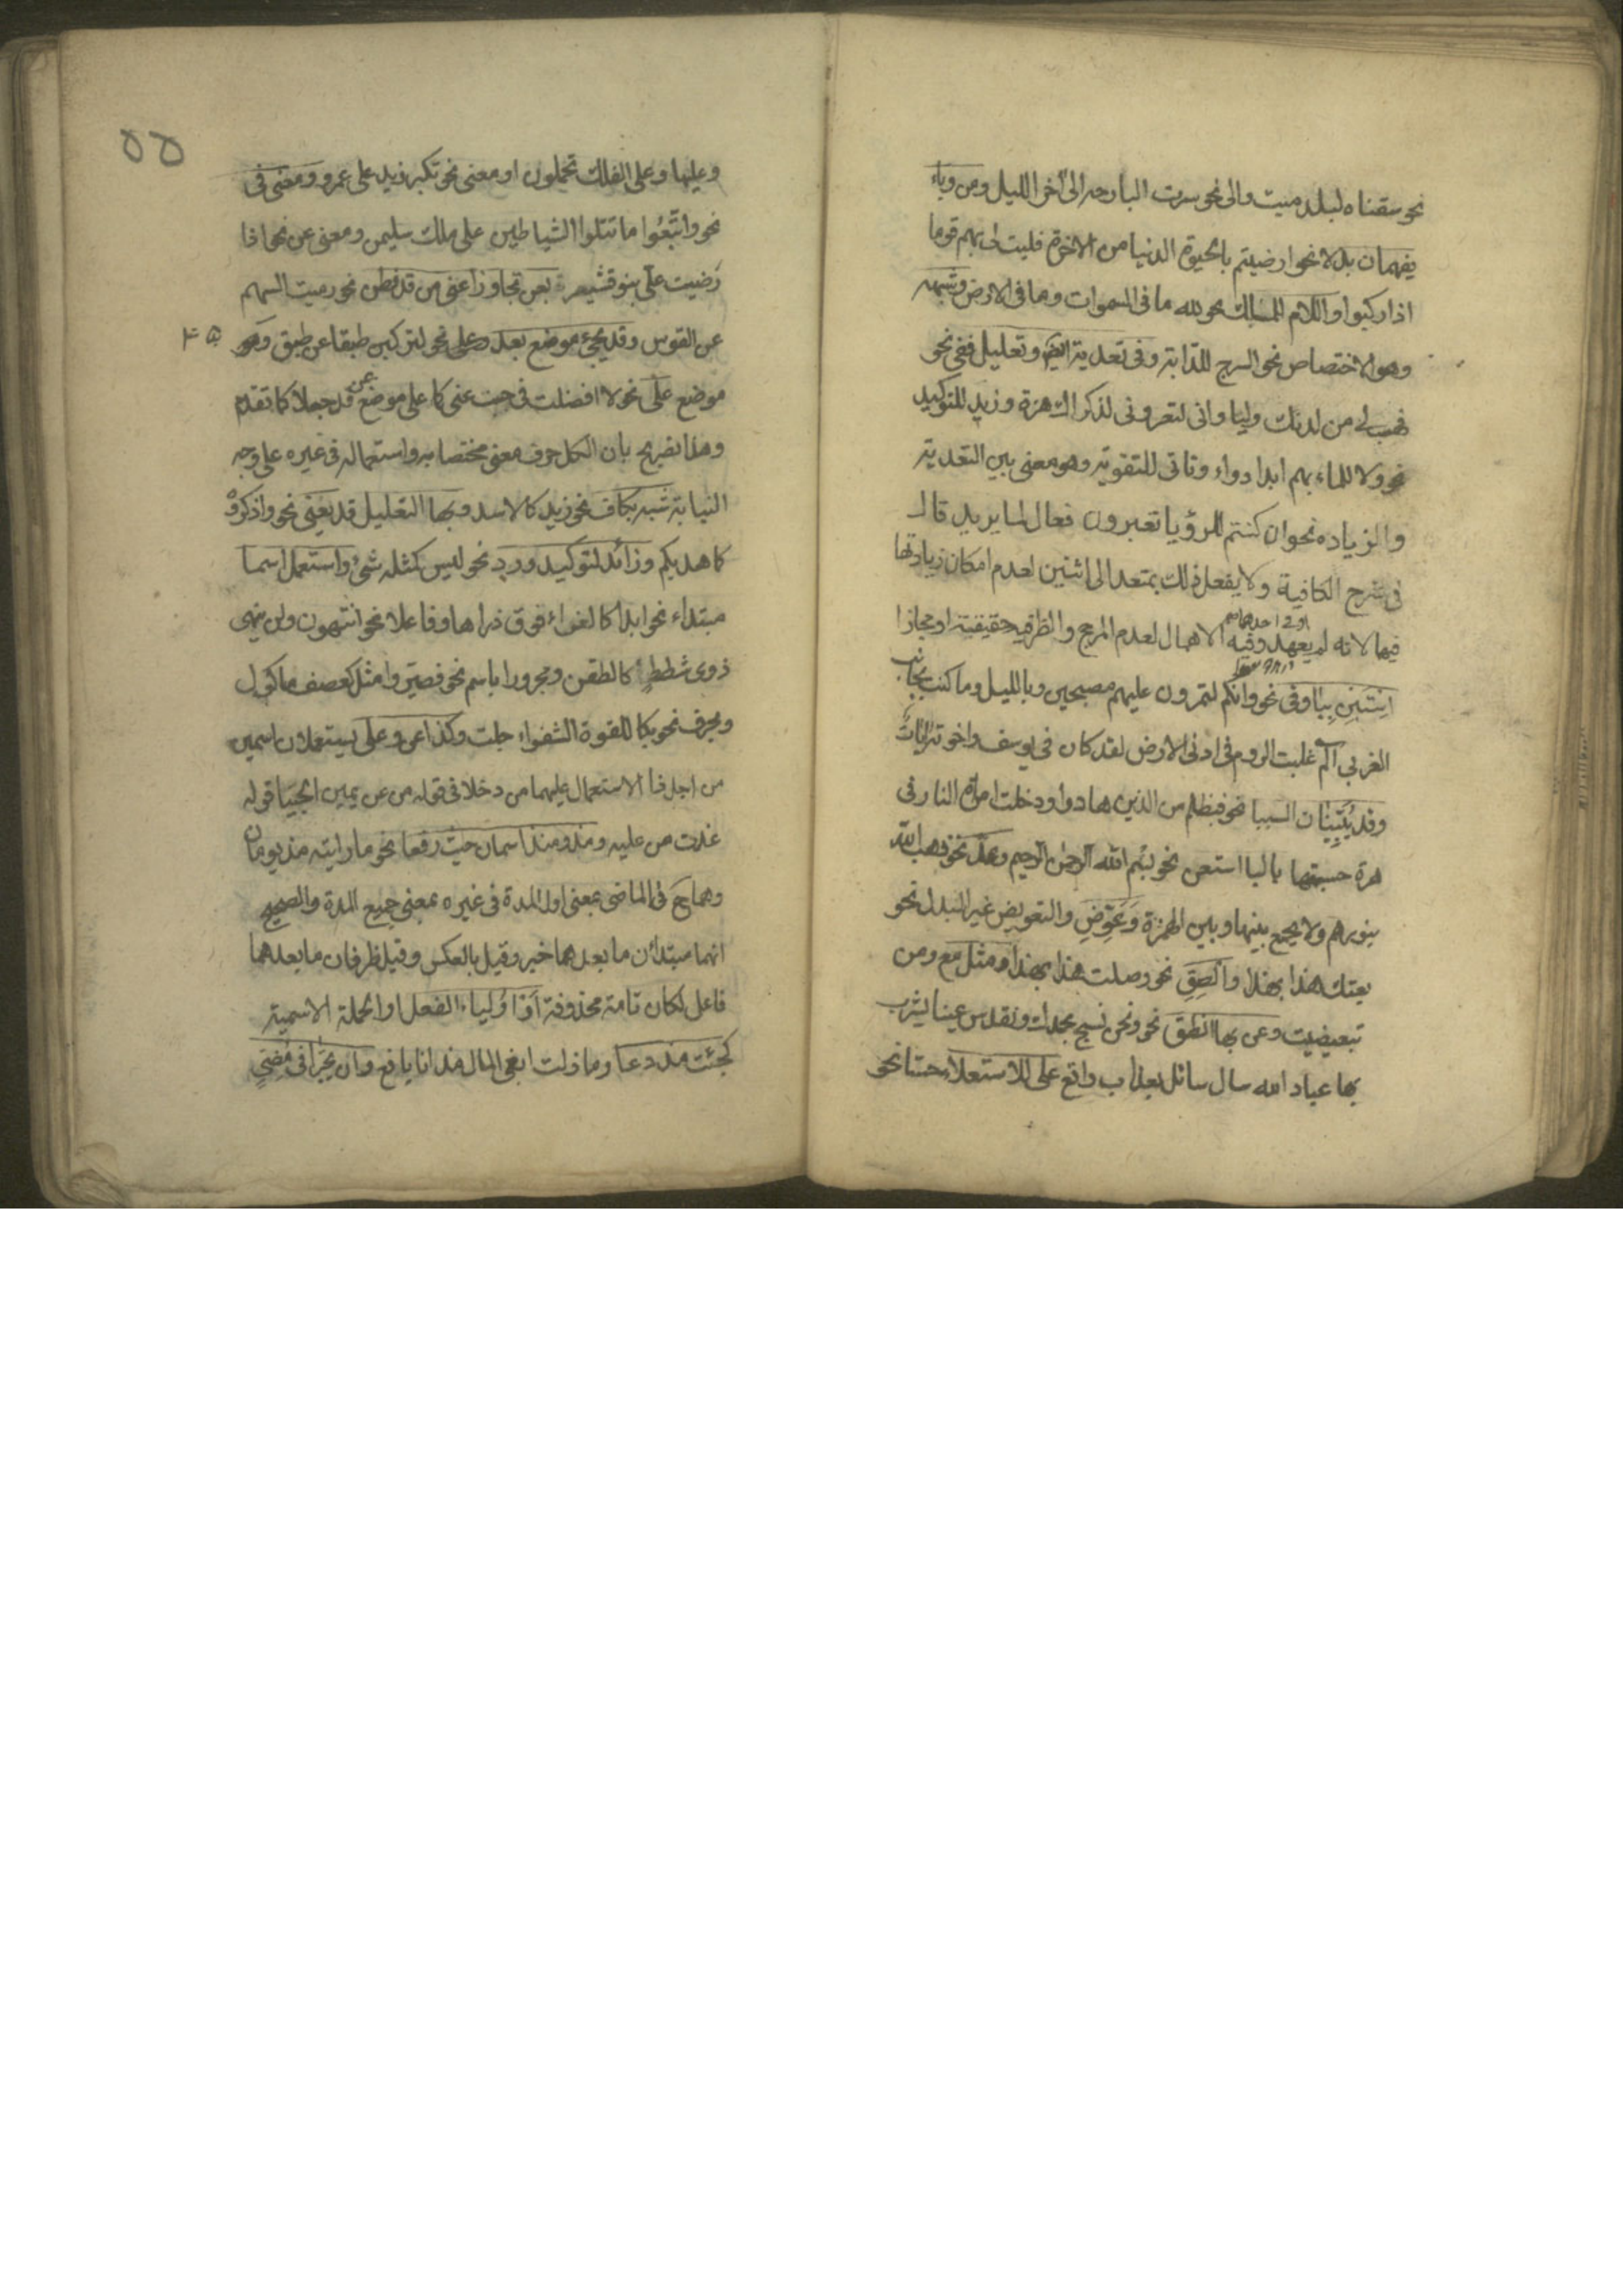 نحو سقناه لبلد ميت والى نحو سرت البارحه الى آخر الليل ومن وباء
يفهمان بدلا نحو ارضيتم بالحيوة الدنيا من الاخرة فليت لى بهم قوما
اذا ركبوا واللام للملك نحو لله ما فى السموات وما فى الارض وشبهه
وهو الاختصاص نحو السرج للدابة وفى تعدية ايضا وتعليل قفى نحو
فهب لى من لدنك وليا وانى لتعرونى لذكراك هزة وزيد للتوكيد
نحو ولا للما بهم ابدا دواء وتاتى للتقوية وهو معنى بين التعدية
والزياده نحو ان كنتم للرؤيا تعبرون فعال لما يريد قال
فى شرح الكافية ولا يفعل ذلك بمتعد الى اثنين لعدم امكان زيادتها
فيهما لانه لم يعهد وفيه الاهمال لعدم المرجح والظرفيه حقيقية او مجازا
استبن ببا وفى نحو وانكم لتمرون عليهم مصبحين وبالليل وما كنت بجانب
الغربى الم غلبت الروم فى ادنى الارض لقد كان فى يوسف واخوته ايات
وقد يبينان السببا نحو فبظلم من الذين هادوا ودخلت امرأة النار فى
هرة حبستها بالبا استعن نحو بسم الله الرحمن الرحيم وعد نحو ذهب الله
بنورهم ولا يجمع بينها وبين الهمزة وعوض والتعويض غير البدل نحو
بعتك هذا بهذا والصق نحو وصلت هذا بهذا ومثل مع ومن
تبعيضيت وعن بها انطق نحو ونحن نسبح بحمدك ونقدس عينا يشرب
بها عباد الله سال سائل بعذاب واقع على للاستعلاء حسا نحو
٥٥
وعليها وعلى الفلك تحملون او معنى نحو تكبر زيد على عمرو ومعنى فى
نحو واتبعوا ما تتلوا الشياطين على ملك سليمن ومعنى عن نحو اذا
رضيت على بنو قشير بعن تجاوزا عنى من قد فطن نحو رميت السهم
عن القوس وقد يجئ موضع بعد وعلى نحو لتركبن طبقا عن طبق وهو
موضع على نحو لا افضلت فى حسب عنى كما على موضع عن قد جعلا كما تقدم
وهذا تصريح بان الكل حرف معنى مختصا به واستعماله فى غيره على وجه
النيابة شبه بكاف نحو زيد كالاسد وبها التعليل قد يعنى نحو واذكروه
كما هديكم وزائد لتوكيد ورد نحو ليس كمثله شئ واستعمل اسما
مبتداء نحو ابدا كالغراء فوق ذراها وفاعلا نحو اتنتهون ولن ينهى
ذوى شطط كالطعن ومجرورا باسم نحو فصيروا مثل كعصف ماكول
وبحرف نحو بكا للقوة الشغواء جلت وكذا عن وعلى يستعملان اسمين
من اجل ذا الاستعمال عليهما من دخلا فى قوله من عن يمين الحبيا قوله
غدت من عليه ومذ ومنذ اسمان حيث رفعا نحو ما رايته مذ يومان
وهما ح فى الماضى بمعنى اول المدة فى غيره بمعنى جميع المدة والصحيح
انهما مبتدأن ما بعدهما خبر وقيل بالعكس وقيل ظرفان ما بعدهما
فاعل لكان تامة محذوفة او اوليا الفعل او الجملة الاسمية
كجئت مذ دعا وما زلت ابغى المال مذ انا يافع وان يجرا فى مضى